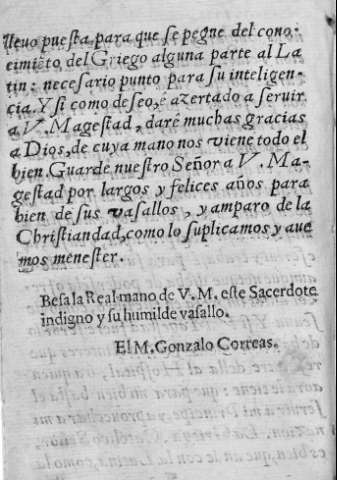 lleuo puesta, para que se pegue del cono-
cimiẽto del Griego alguna parte al La
tin: necesario punto para su inteligen-
cia. Y si como deseo, è azertado a seruir
a V. Magestad, darè muchas gracias
a Dios, de cuya mano nos viene todo el
bien. Guarde nuestro Señor a V. Ma-
gestad por largos y felices años para
bien de sus vasallos, y amparo de la
Christiandad, como lo suplicamos y aue
mos menester.
Besa la Real mano de V. M. este Sacerdote
indigno y su humilde vasallo.
El M. Gonzalo Correas.